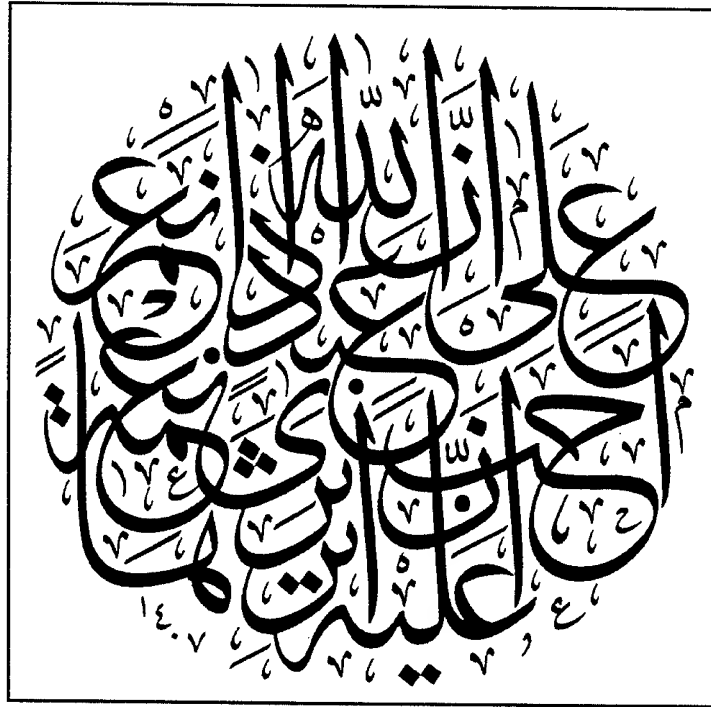 ان الله اذا انعم على عبد نعمة
احب ان يرى اثرها عليه
١٤٠٧